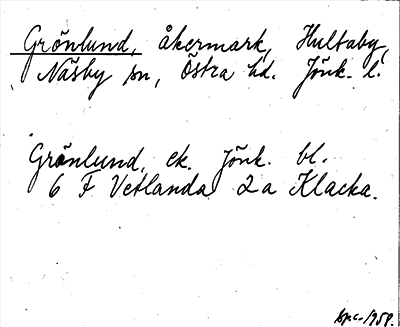 Grönlund, åkermark, Hultaby,
Näsby sn, Östra hd. Jönk. l.
Grönlund, ek. Jönk. bl.
6 F Vetlanda 2 a Klacka.
1958.